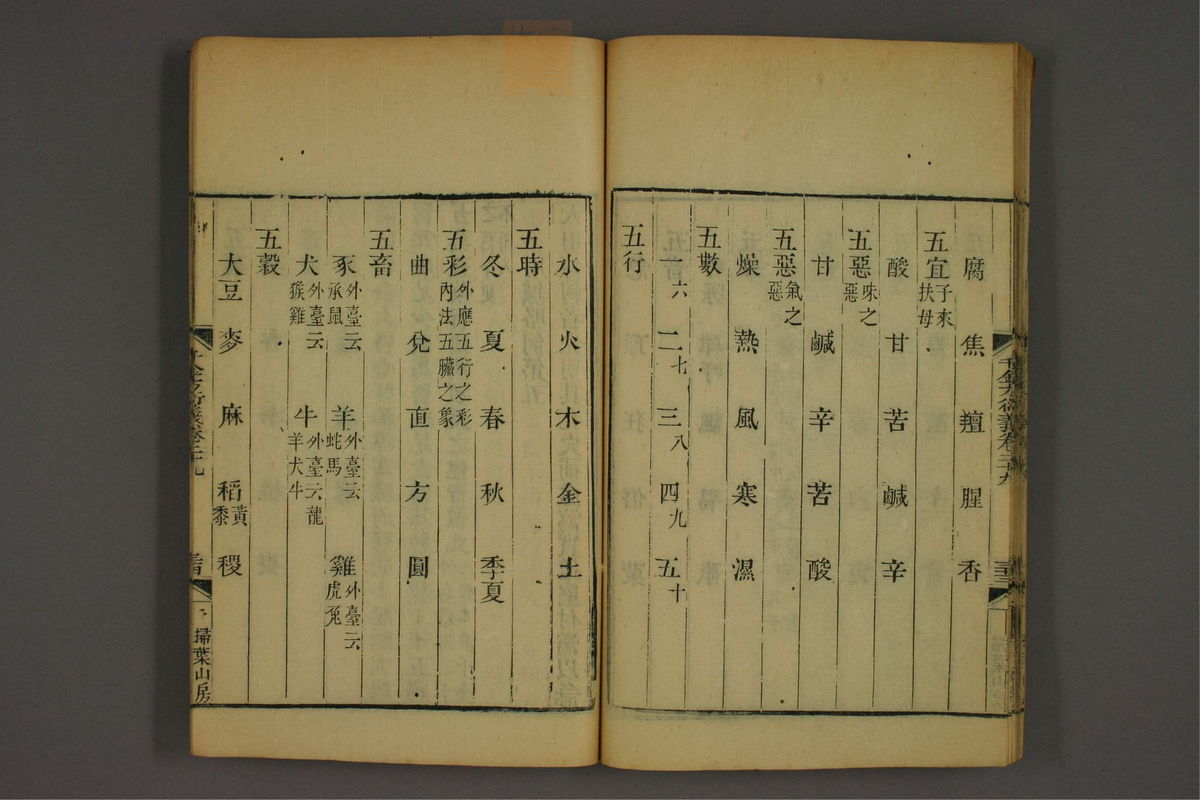 腐 焦 羶 腥 香
五宜子來扶母
酸 甘 苦 鹹 辛
五惡味之惡
甘 鹹 辛 苦 酸
五惡氣之惡
燥 熱 風 寒 濕
五數
六 二七 三八 四九 五十
五行
水 火 木 金 土
五時
冬 夏 春 秋 季夏
五彩外應五行之彩內法五臟之象
曲 兌 直 方 圓
五畜
豕外臺云承鼠 羊外臺云蛇馬 雞外臺云虎兔
犬外臺云猴雞 牛外臺云龍羊犬牛
五穀
大豆 麥 麻 稻黃黍 稷
千金方衍義卷二十九
掃葉山房